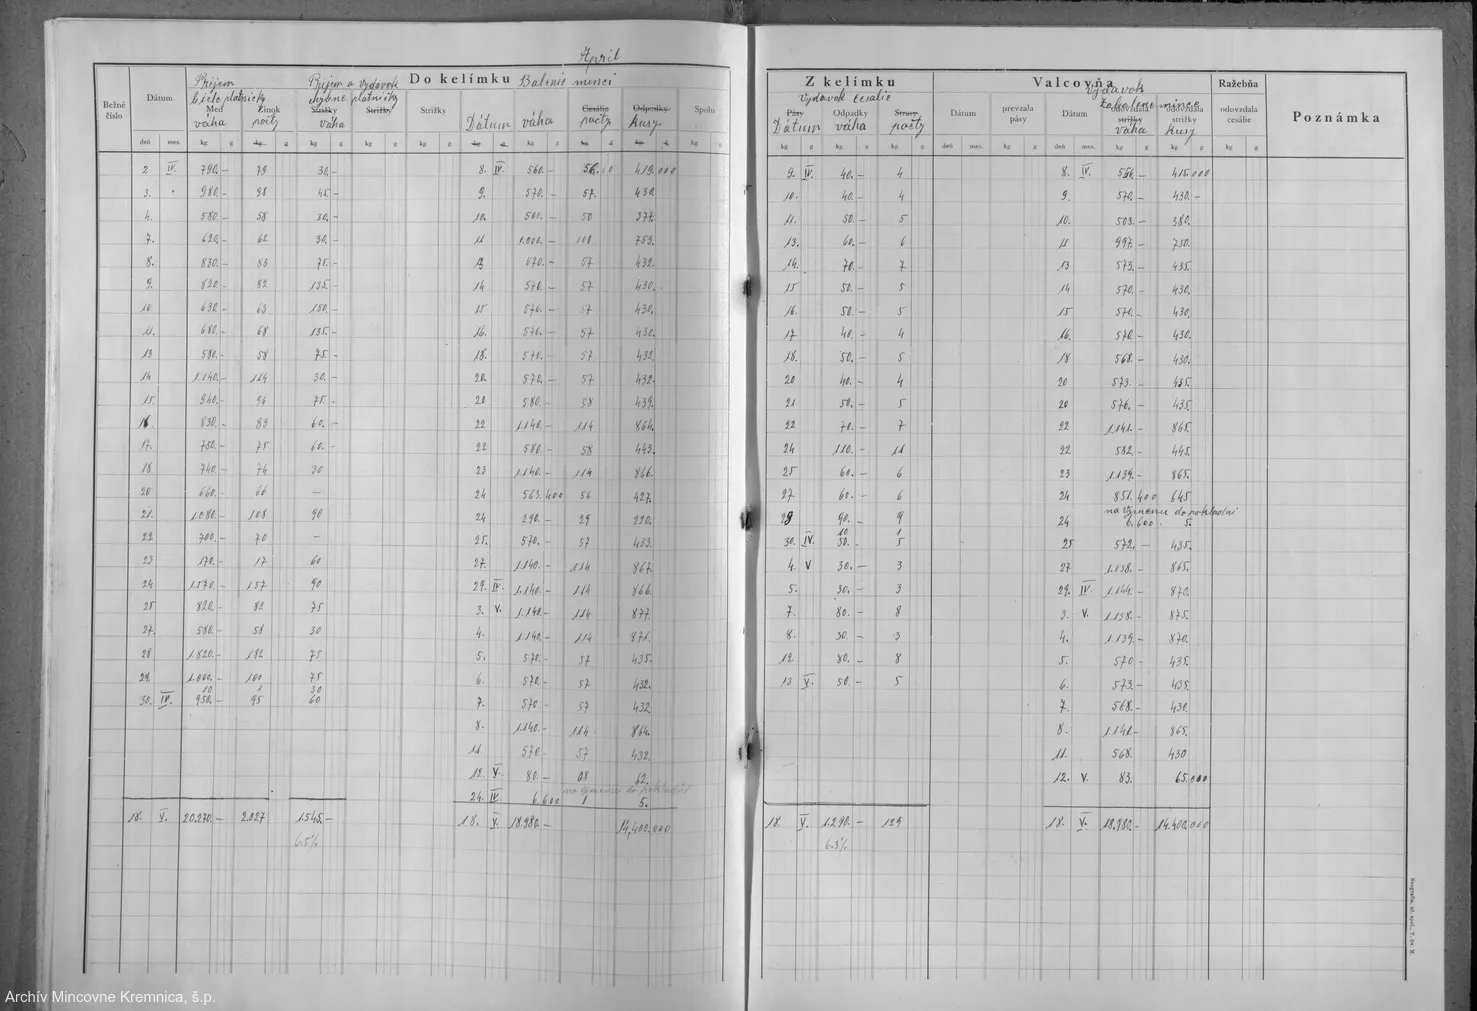 April
Do kelímku Balenie mincí
Príjem
biele platničky
Príjem a výdavok
chybné platničky
Bežné číslo
Dátum
Meď
váha
Zinok
počty
Strižky
váha
Strižky
Strižky
Dátum
váha
Cesálie
počty
Odpadky
kusy
Spolu
deň mes. kg g kg g kg g kg g kg g kg g kg g kg g kg g kg g
2 IV. 790.- 79 30.- 8. IV. 560.- 56 419.000
3. 980.- 98 45.- 9. 570.- 57. 430.
4. 580.- 58 30.- 10. 500.- 50 377.
7. 620.- 62 30.- 11 1.000.- 100 753.
8. 830.- 83 75.- 13 570.- 57 432.
9. 820.- 82 135.- 14 570.- 57 430.
10 630.- 63 150.- 15 570.- 57 430.
11. 680.- 68 135.- 16. 570.- 57 430.
13 580.- 58 75.- 18. 570.- 57 432
14 1.140.- 114 30.- 20. 570.- 57 432.
15. 940.- 94 75.- 20 580.- 58 439.
16. 830.- 83 60.- 22 1.140.- 114 864.
17. 750.- 75 60.- 22 580.- 58 443.
18 740.- 74 30 23 1.140.- 114 866.
20 660.- 66 — 24 563.400 56 427.
21. 1.080.- 108 90 24 290.- 29 220.
22 700.- 70 — 25. 570.- 57 433.
23 170.- 17 60 27. 1.140.- 114 867.
24 1.570.- 157 90 29. IV. 1.140.- 114 866.
25 820.- 82 75 3. V. 1.140.- 114 877.
27. 580.- 58 30 4. 1.140.- 114 871.
28 1.820.- 182 75 5. 570.- 57 435.
29. 1.000.- 100 75 6. 570.- 57 432.
10 1 30
30. IV. 950.- 95 60 7. 570.- 57 432
8. 1.140.- 114 864.
11. 570.- 57 432.
12. V. 80.- 08 62.
na výmenu do pokladní
24. IV. 6.600 1 5.
18. V. 20.270.- 2.027 1.545.- 18. V. 18.980.- 14,400.000
6.5%
Z kelímku
Výdavok cesálie
Valcovňa
Výdavok
zabalené mince
Ražebňa
Pásy
Dátum
Odpadky
váha
Strusy
počty
Dátum
prevzala pásy
Dátum
odovzdala strižky
váha
odovzdala strižky
kusy
odovzdala cesálie
Poznámka
kg g kg g kg g deň mes. kg g deň mes. kg g kg g kg g
9. IV. 40.- 4 8. IV. 556.- 415.000
10. 40.- 4 9. 570.- 430.-
11. 50.- 5 10. 503.- 380.
13. 60.- 6 11 997.- 750.
14. 70.- 7 13 573.- 435.
15 50.- 5 14 570.- 430.
16. 50.- 5 15 570.- 430.
17 40.- 4 16. 570.- 430.
18. 50.- 5 18 568.- 430.
20 40.- 4 20 573.- 435.
21 50.- 5 20 576.- 435.
22 70.- 7 22 1.141.- 865.
24 110.- 11 22 582.- 445.
25 60.- 6 23 1.139.- 865.
27 60.- 6 24 851.400 645
na výmenu do pokladní
29 90.- 9 24 6.600. 5.
10 1
30. IV. 50.- 5 25 572.- 435.
4. V 30.- 3 27 1.138.- 865.
5. 30.- 3 29. IV. 1.144.- 870.
7. 80.- 8 3. V. 1.138.- 875.
8. 30.- 3 4. 1.139.- 870.
12 80.- 8 5. 570.- 435.
13 V. 50.- 5 6. 573.- 435.
7. 568.- 430
8. 1.141.- 865.
11. 568. 430
12. V. 83. 65.000
18. V. 1.290.- 129 18. V. 18.980.- 14.400.000
6.3%
Archív Mincovne Kremnica, š.p.